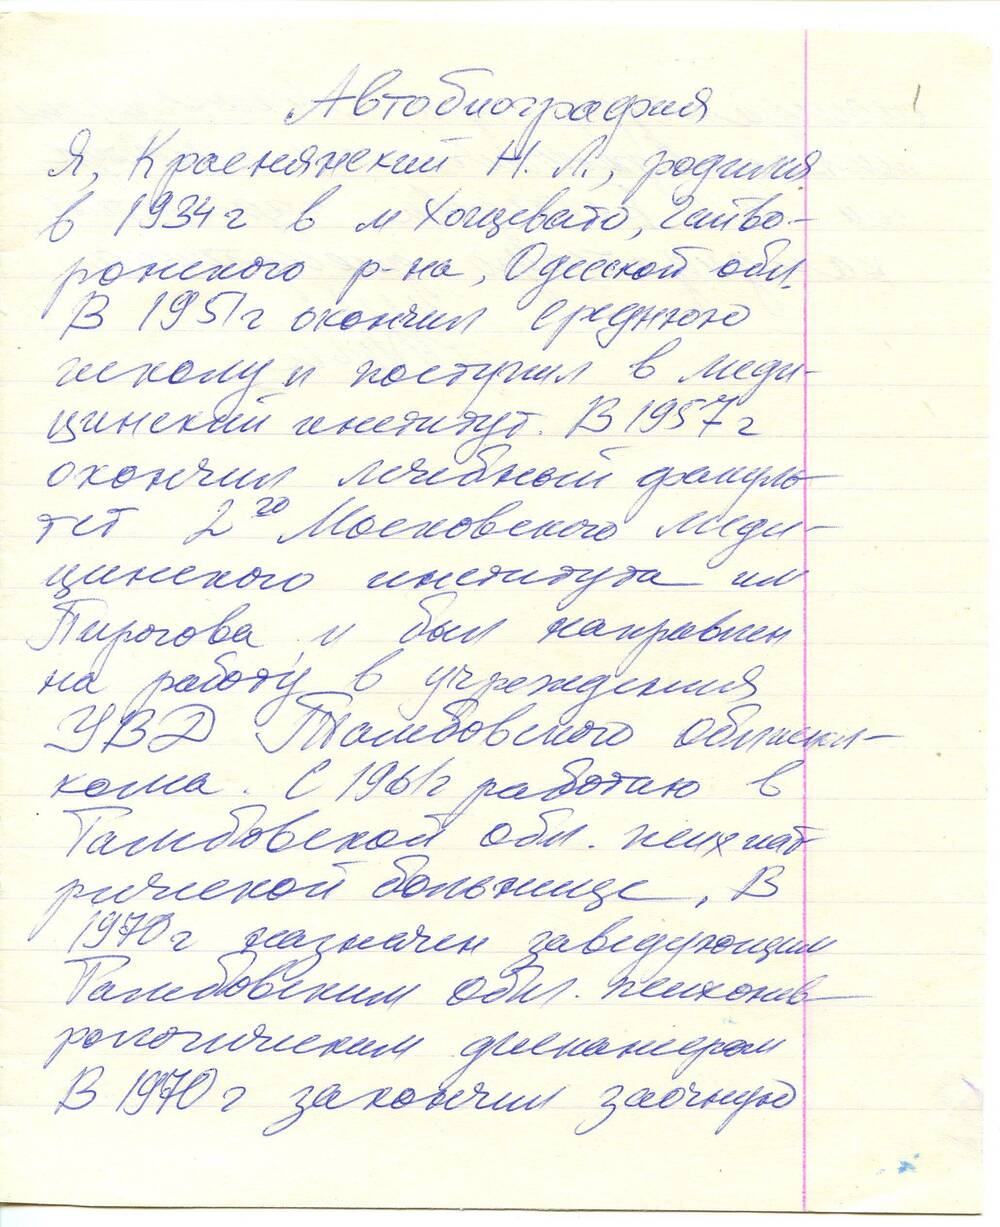 Автобиография
1
Я, Краснянский Н. Л., родился
в 1934 г в м Хощевато, Гайво-
ронского р-на, Одесской обл.
В 1951 г окончил среднюю
школу и поступил в меди-
цинский институт. В 1957 г
окончил лечебный факуль-
тет 2го Московского меди-
цинского института им
Пирогова и был направлен
на работу в учреждения
УВД Тамбовского облиспол-
кома. С 1961 г работаю в
Тамбовской обл. психиат
рической больнице, В
1970 г назначен заведующим
Тамбовским обл. психонев
рологическим диспансером
В 1970 г закончил заочную